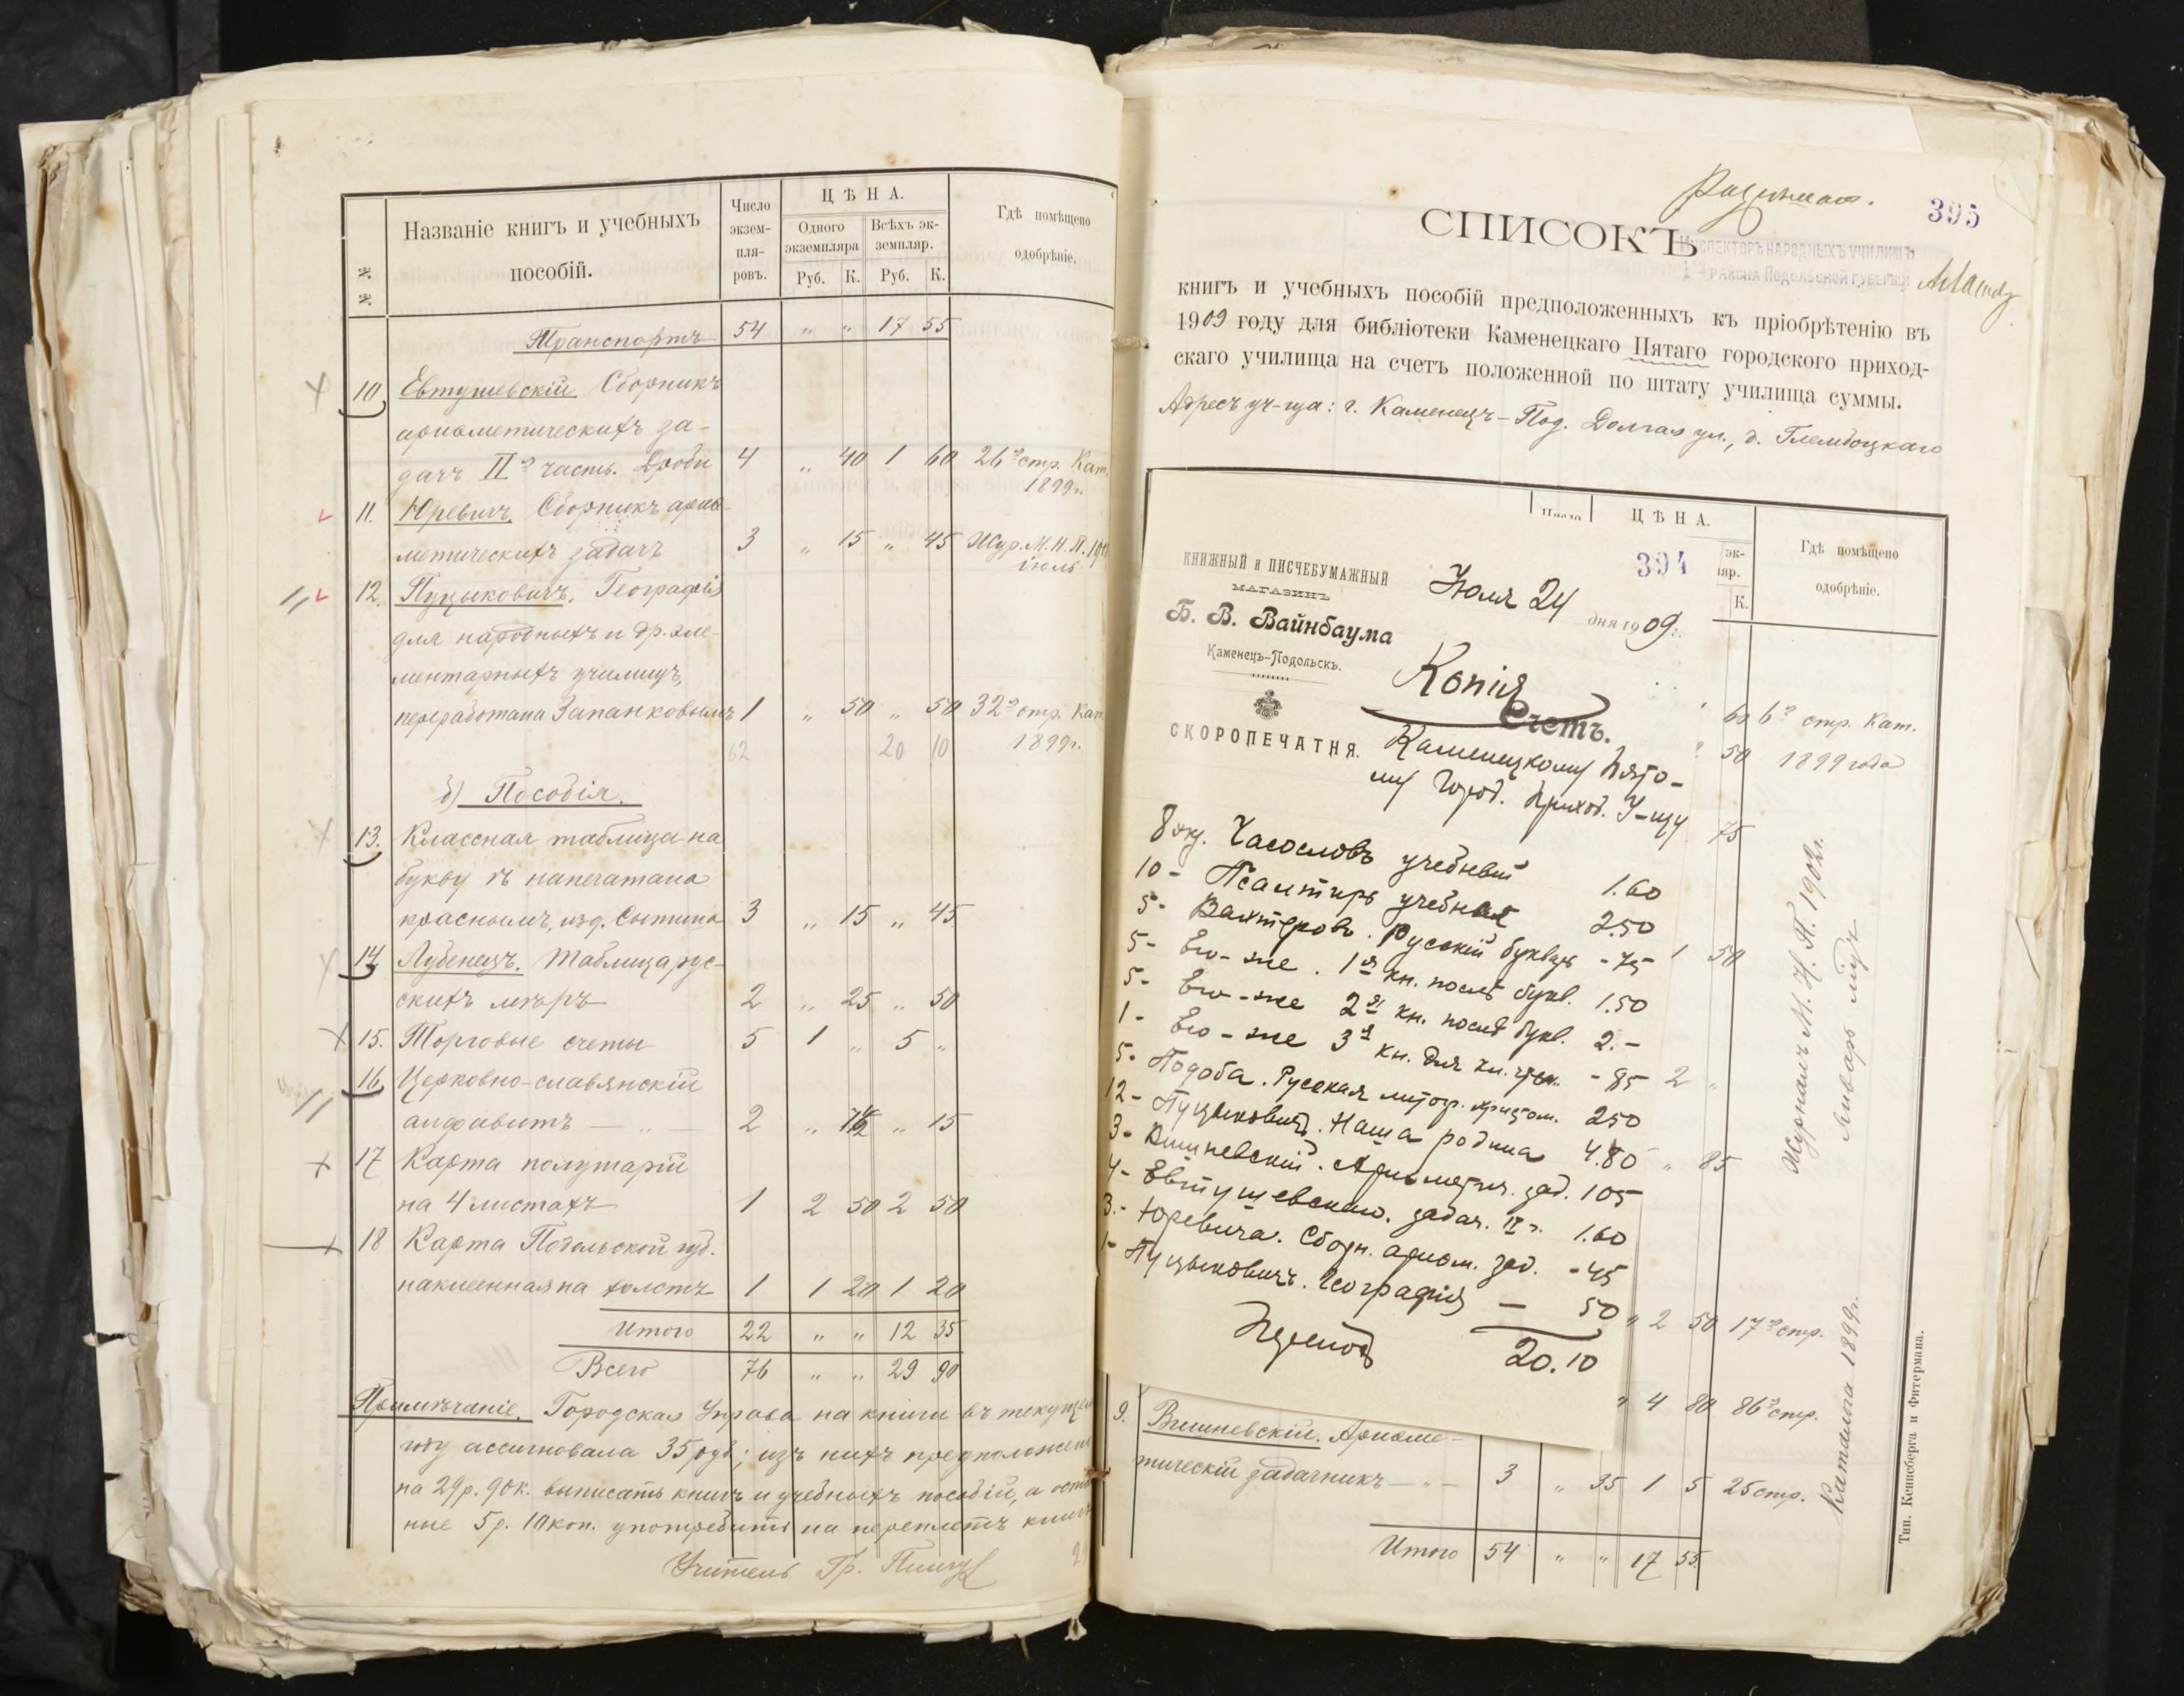 № №
Названіе книгъ и учебныхъ пособій.
Число экзем-пля-ровъ.
ЦѢНА.
Одного экземпляра
Всѣхъ эк-земпляр.
Руб. К. Руб. К.
Гдѣ помѣщено одобрѣніе.
Транспортъ 54 " " 17 55
10 Евтушевскій. Сборникъ
ариѳметическихъ за-
дачъ II я часть. Дроби 4 " 40 1 60 26 я стр. Кат.
1899 г.
11. Юревичъ. Сборникъ ариѳ-
метическихъ задачъ 3 " 15 " 45 Жур. М. Н. П.
іюль
12. Пуцыковичъ. Географія
для народныхъ и др. эле-
ментарныхъ училищъ,
переработана Запанковымъ 1 " 50 " 50 32 я стр. Кат.
62 20 10 1899 г.
б) Пособія.
13. Классная таблица на
букву ѣ напечатана
краснымъ, изд. Сытина 3 " 15 " 45
14 Лубенецъ. Таблица рус-
скихъ мѣръ 2 " 25 " 50
15. Торговые счеты 5 1 " 5 "
16 Церковно-славянскій
алфавитъ — " — 2 " 7½ " 15
17 Карта полушарій
на 4 листахъ 1 2 50 2 50
18 Карта Подольской губ.
наклеенная на холстъ 1 1 20 1 20
Итого 22 " " 12 35
Всего 76 " " 29 90
Примѣчаніе. Городская Управа на книги въ текущемъ
году ассигновала 35 руб.; изъ нихъ предположено
на 29 р. 90 к. выписать книгъ и учебныхъ пособій, а осталь
ные 5 р. 10 коп. употребить на переплетъ книгъ
Учитель Гр.
395
СПИСОКЪ
ИНСПЕКТОРЪ НАРОДНЫХЪ УЧИЛИЩЪ
РАЙОНА ПОДОЛЬСКОЙ ГУБЕРНІИ
книгъ и учебныхъ пособій предположенныхъ къ пріобрѣтенію въ
1909 году для библіотеки Каменецкаго Пятаго городского приход-
скаго училища на счетъ положенной по штату училища суммы.
Адресъ уч-ща: г. Каменецъ-Под. Долгая ул., д. Глембоцкаго
Число
ЦѢНА.
эк-
ляр.
К.
Гдѣ помѣщено
одобрѣніе.
394
КНИЖНЫЙ и ПИСЧЕБУМАЖНЫЙ
МАГАЗИНЪ
Б. В. Вайнбаума
Каменецъ-Подольскъ.
СКОРОПЕЧАТНЯ.
Июля 24 дня 1909 г.
Копія
Счетъ.
Каменецкому Пято-
му Город. Приход. У-щу
8 экз. Часословъ учебный 1.60
10 - Псалтирь учебная 2.50
5 - Вахтеровъ. Русскій букварь - 75
5 - Его-же. 1 я кн. послѣ букв. 1.50
5 - Его-же 2 я кн. послѣ букв. 2.-
1 - Его-же 3 я кн. для кл. чтен. - 85
5 - Подоба. Русская литогр. христом. 250
12 - Пуцыковичъ. Наша родина 4.80
3 - Вишневскій. Ариѳметич. зад. 105
4 - Евтушевскаго. задач. II ч. 1.60
3 - Юревича. Сборн. ариѳм. зад. - 45
1 - Пуцыковичъ. Географія — 50
20.10
60 6 я стр. Кат.
50 1899 года
75
1 50
2 "
" 85
Журналъ М. Н. П. 1902 г.
Январь мѣс
" 2 50 17 я стр.
" 4 80 86 я стр.
Каталога 1899 г.
9. Вишневскій. Ариѳме-
тическій задачникъ — " — 3 " 35 1 5 25 стр.
Итого 54 " " 17 55
Тип. Кенигсберга и Фитермана.